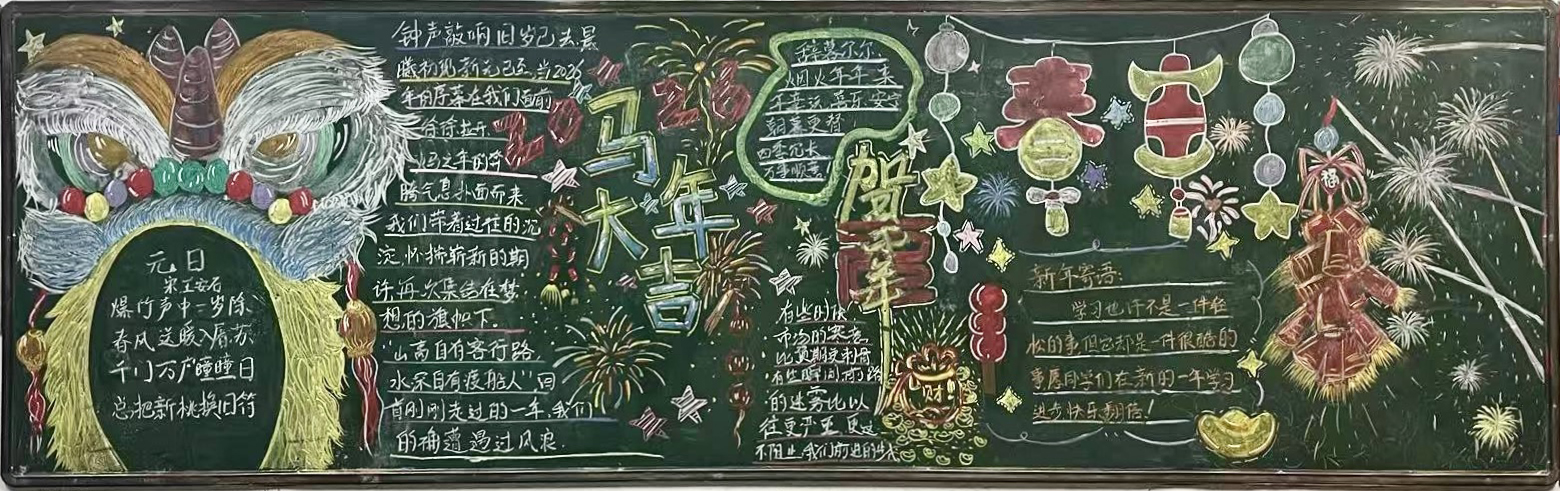 元日
宋 王安石
爆竹声中一岁除
春风送暖入屠苏
千门万户曈曈日
总把新桃换旧符
钟声敲响旧岁已去晨
曦初现新元已至 当2026
年的序幕在我们面前
徐徐拉开
马之年的奔
腾气息扑面而来
我们带着过往的沉
淀 怀揣崭新的期
许 再次集结在梦
想的旗帜下。
"山高自有客行路
水深自有渡船人"回
首刚刚走过的一年,我们
的确遭遇过风浪.
2026
马年
大吉
辞暮尔尔
烟火年年
喜乐安宁
朝暮更替
四季冗长
万事顺意
贺新年
有些时候
市场的寒意
比预期更刺骨
有些瞬间前路
的迷雾比以
往更严重 更
不阻止我们前进的步伐
财
春
新年寄语:
学习也许不是一件轻
松的事但它却是一件很酷的
事愿同学们在新的一年学习
进步快乐翻倍!
福